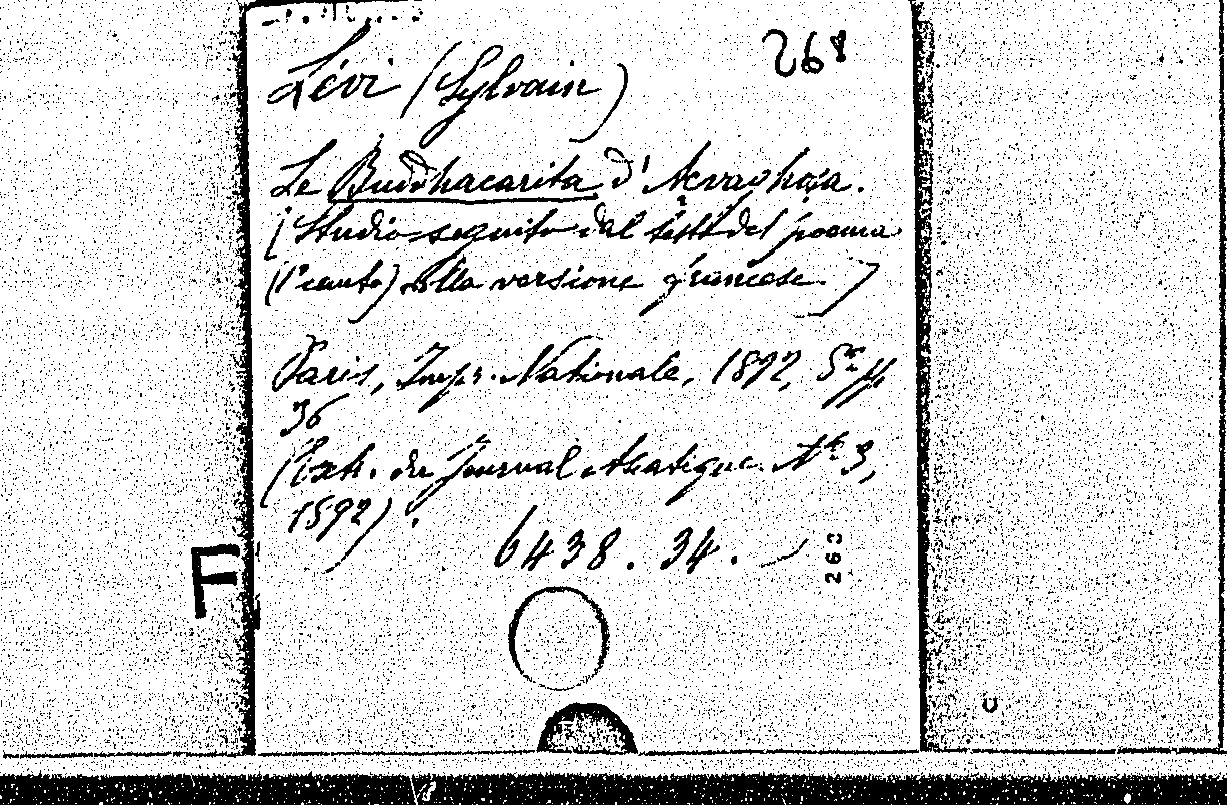 268
Lévi (Sylvain)
Le Buddhacarita d'Açvaghoṣa.
[Studio seguito dal testo del poema
(I° canto) e della versione francese.]
Paris, Impr. Nationale, 1892, 8° pp.
36
(Extr. du Journal Asiatique. N° 3,
1892).
6438. 34.
268
F